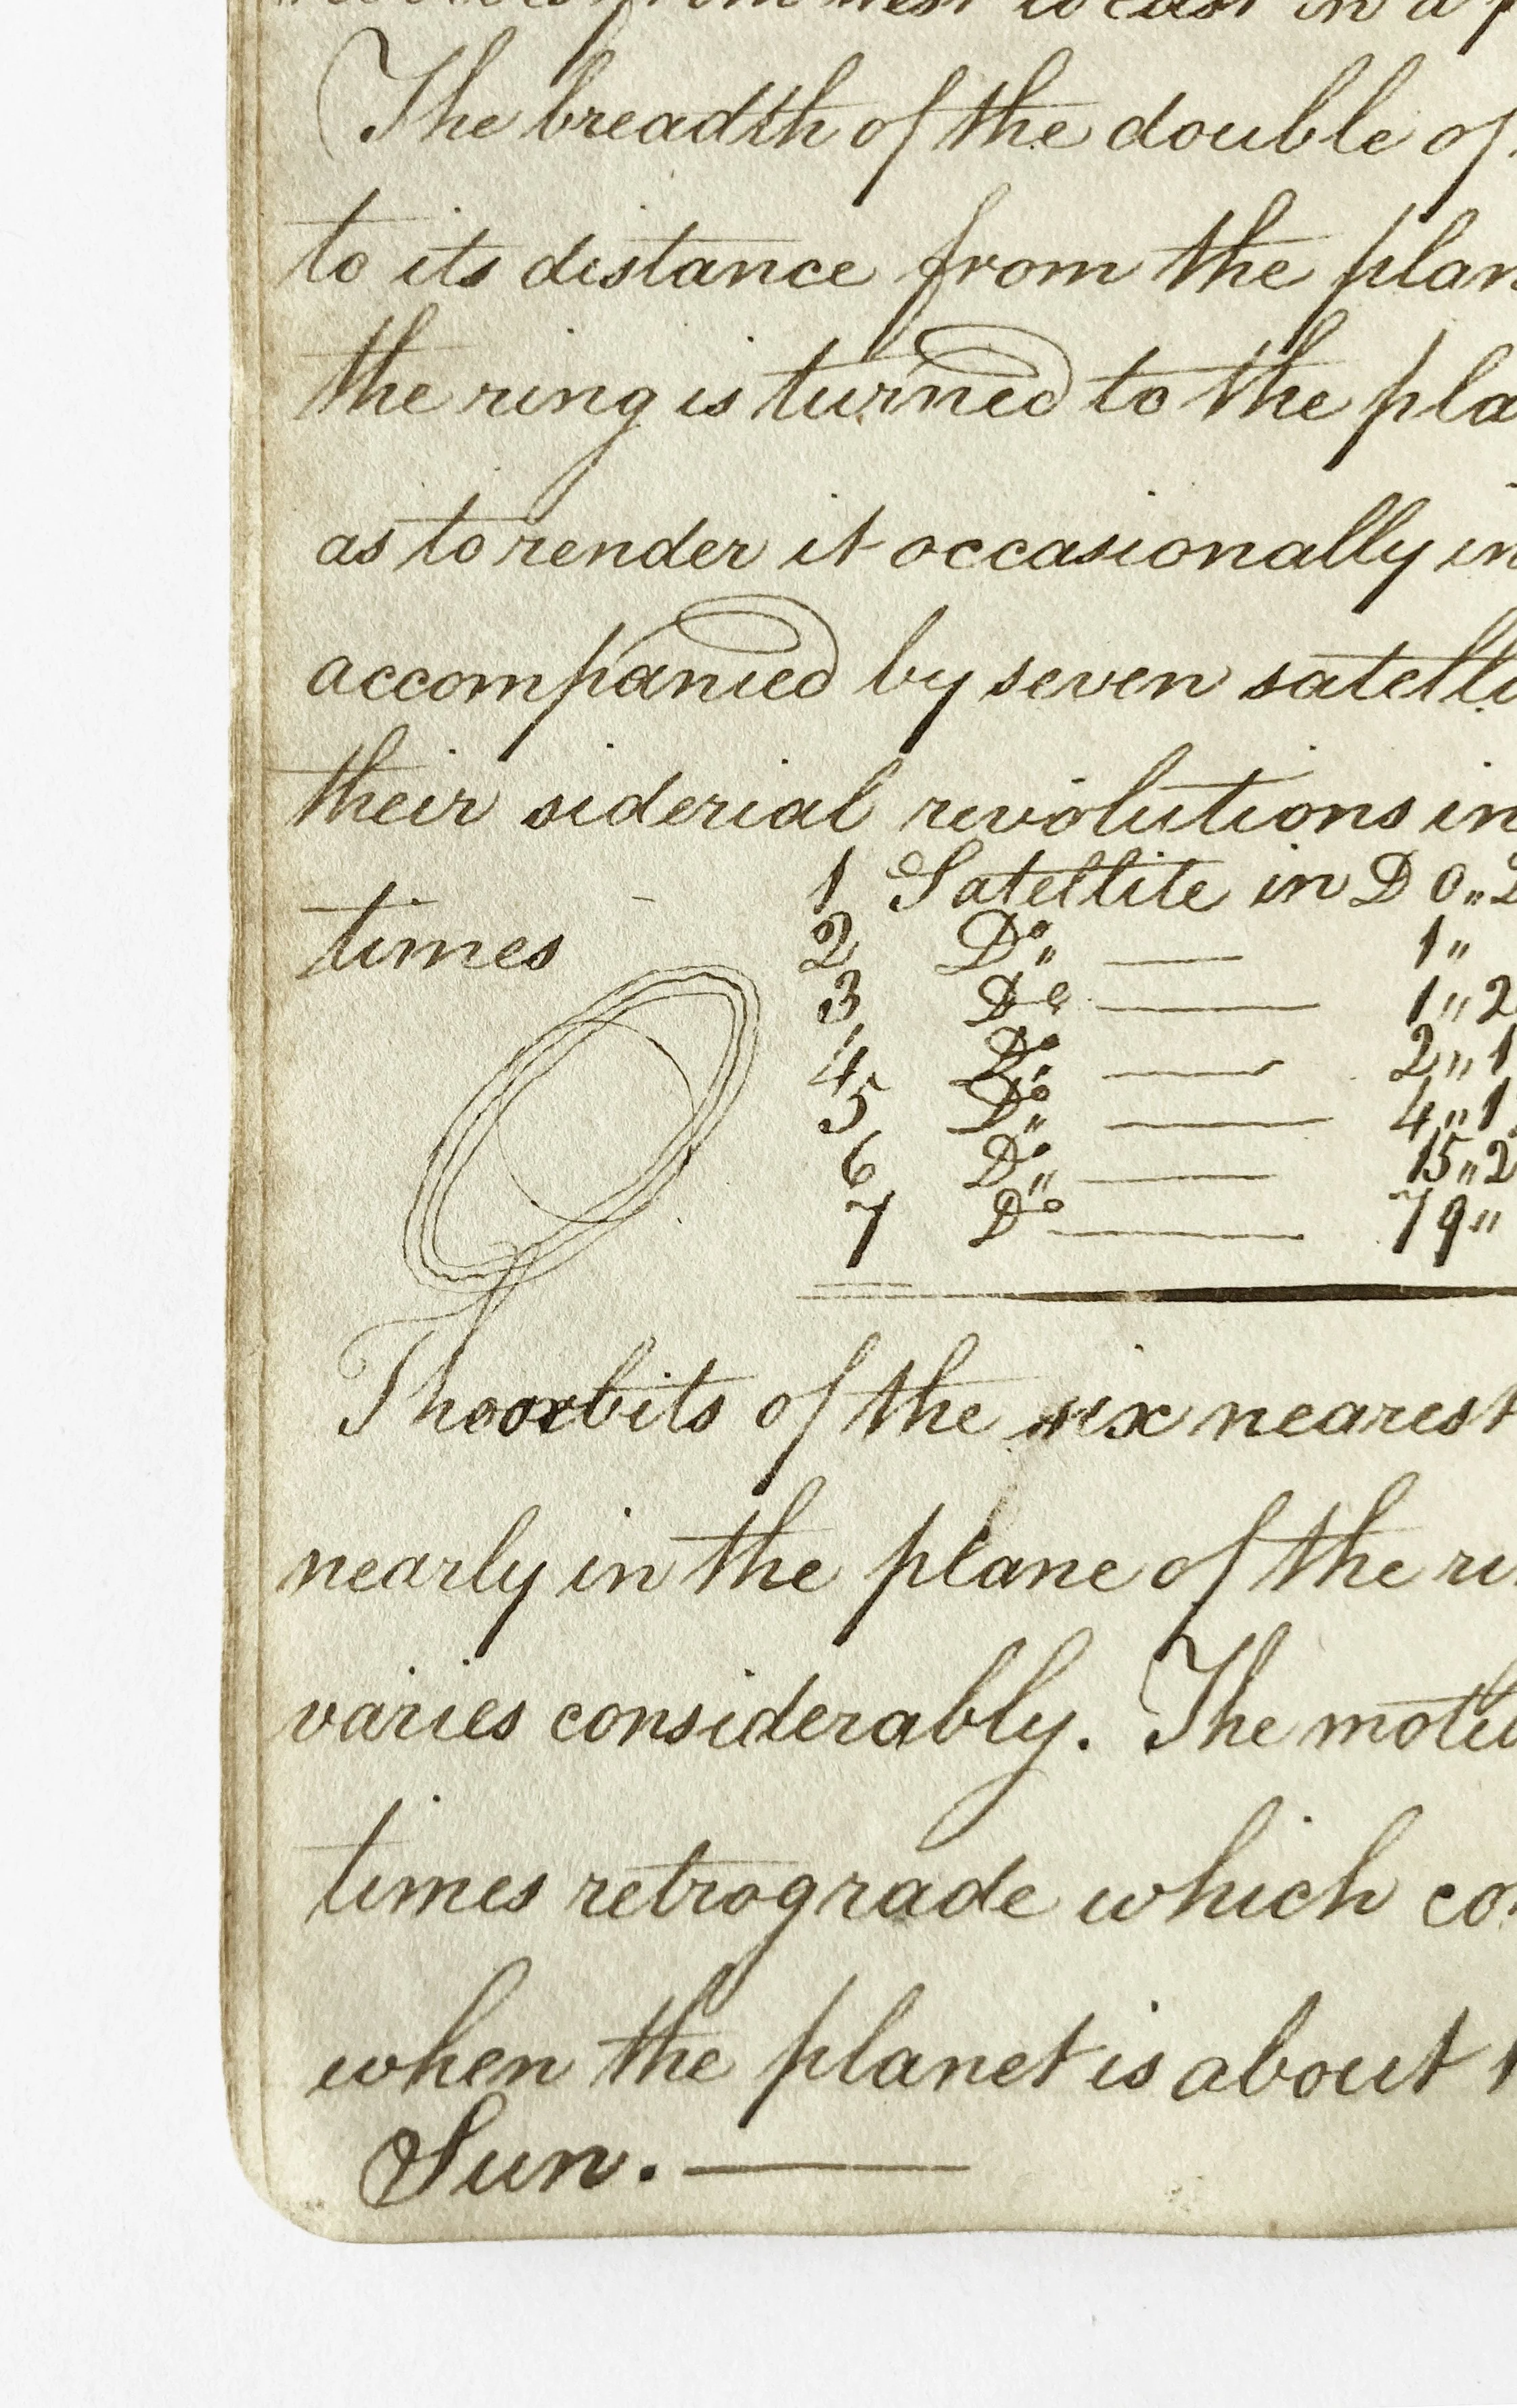 from west to east in a
The breadth of the double of
to its distance from the plan
the ring is turned to the pla
as to render it occasionally in
accompanied by seven satelli
their siderial revolutions in
times
1 Satellite in D 0„2
2 Do„ — 1„
3 Do — 1„2
4 Do„ — 2„1
5 Do„ — 4„1
6 Do„ — 15„2
7 Do — 79„
The orbits of the six nearest
nearly in the plane of the ri
varies considerably. The moti
times retrograde which co
when the planet is about 1
Sun. —